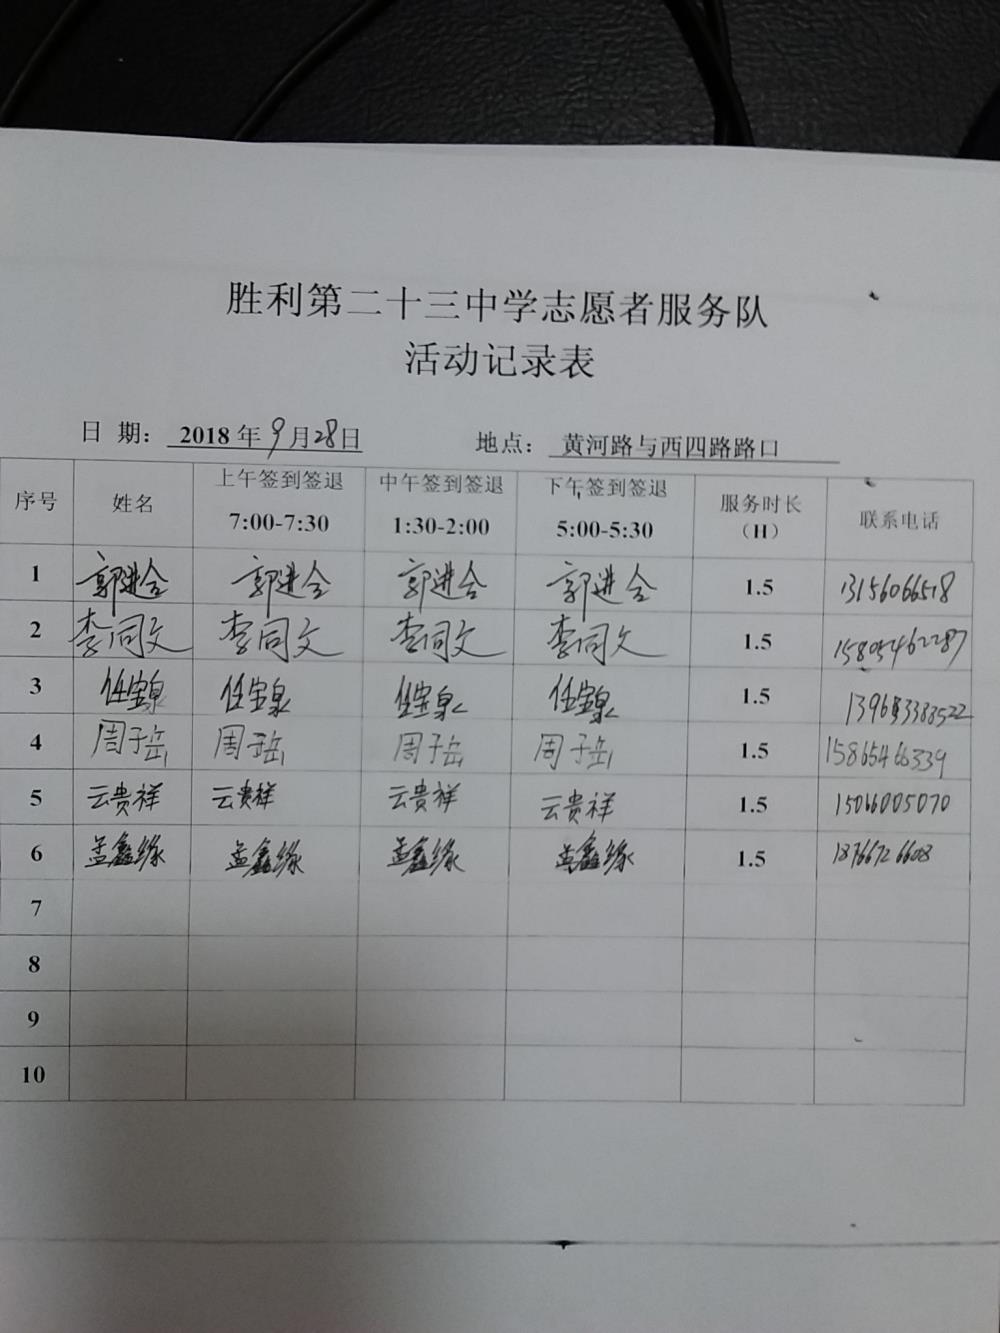 胜利第二十三中学志愿者服务队
活动记录表
日 期： 2018年9月28日 地点： 黄河路与西四路路口
序号 姓名 上午签到签退 7:00-7:30 中午签到签退 1:30-2:00 下午签到签退 5:00-5:30 服务时长（H） 联系电话
1 郭进合 郭进合 郭进合 郭进合 1.5 13156066518
2 李同文 李同文 李同文 李同文 1.5 15805462287
3 任宝泉 任宝泉 任宝泉 任宝泉 1.5
4 周子岳 周子岳 周子岳 周子岳 1.5 15865466339
5 云贵祥 云贵祥 云贵祥 云贵祥 1.5 15066005070
6 孟鑫缘 孟鑫缘 孟鑫缘 孟鑫缘 1.5 18766726608
7
8
9
10